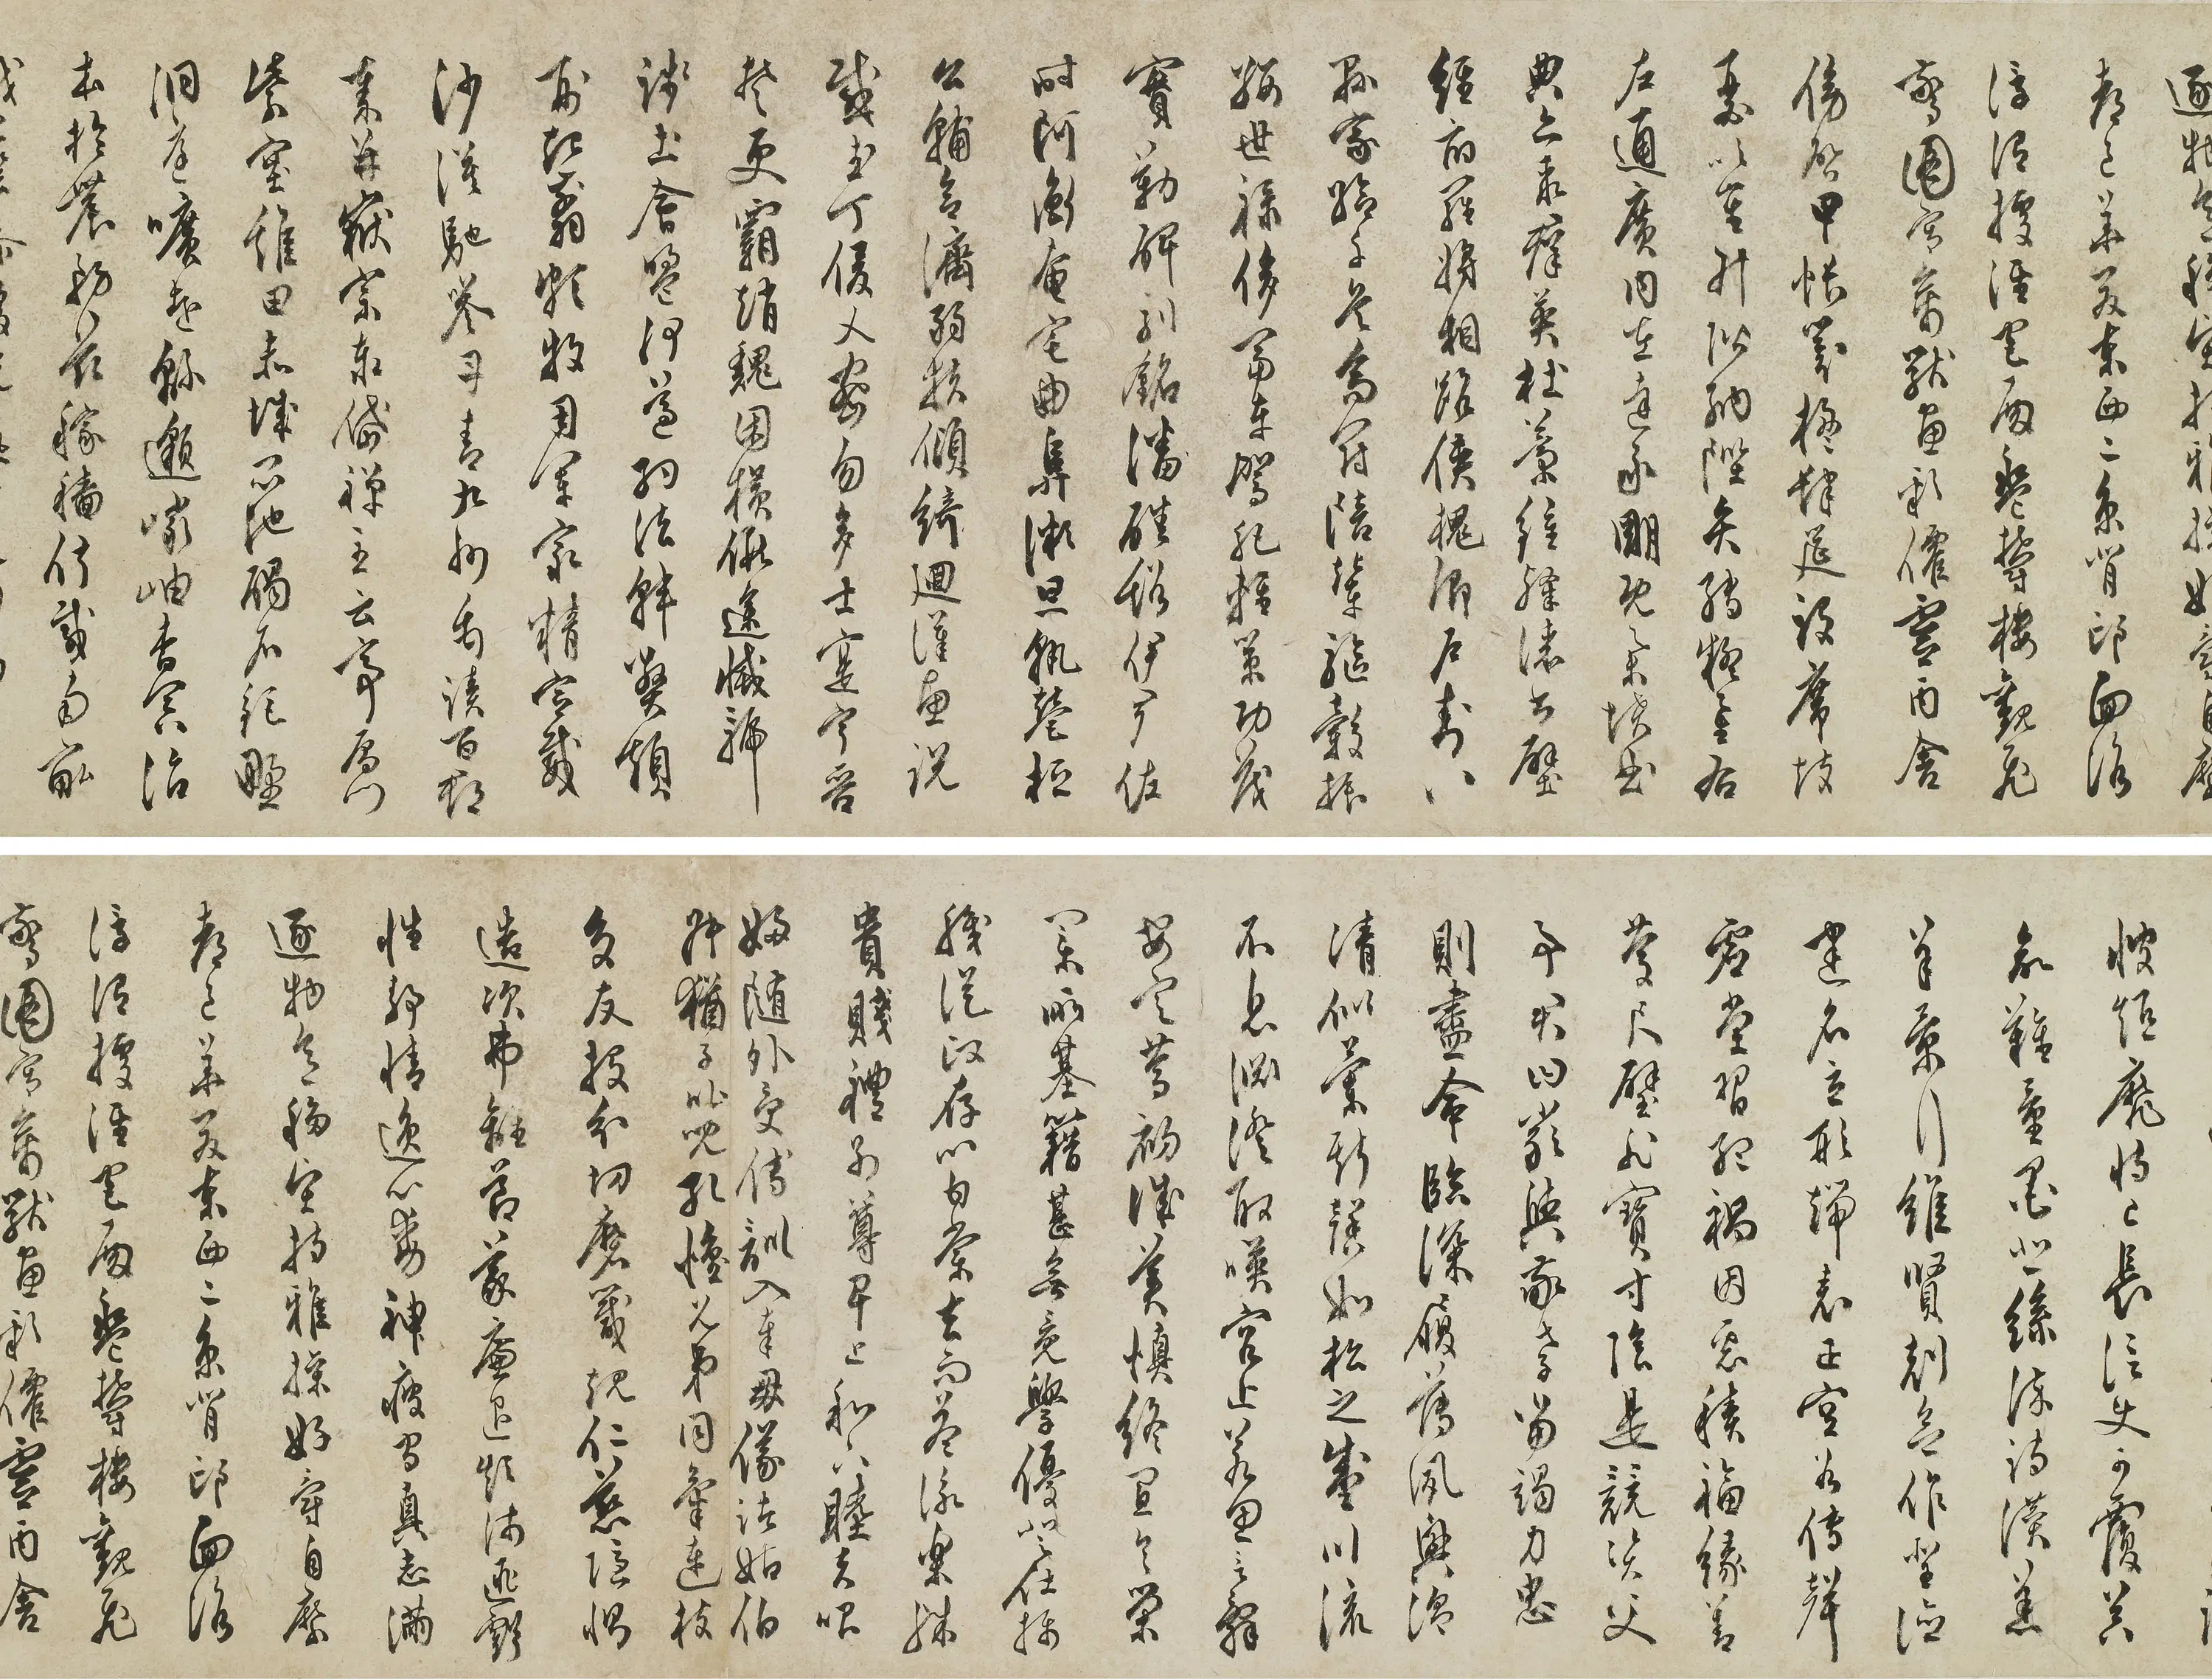 逐物意移堅持雅操好爵自縻
都邑華夏東西二京背邙面洛
浮渭據涇宮殿盤鬱樓觀飛
驚圖寫禽獸畫彩僊靈丙舍
傍啓甲帳對楹肆筵設席鼓
瑟吹笙升階納陛弁轉疑星右
左通廣內左達承明既集墳
典亦聚群英杜藁鍾隸漆書壁
經府羅將相路俠槐卿戶封八
縣家給千兵高冠陪輦驅轂振
纓世祿侈富車駕肥輕策功茂
實勒碑刻銘磻磎伊尹佐
時阿衡奄宅曲阜微旦孰營桓
公輔合濟弱扶傾綺迴漢惠說
感武丁俊乂密勿多士寔寧晉
楚更霸趙魏困橫假途滅虢
踐土會盟何遵約法韓弊煩
刑起翦頗牧用軍最精宣威
沙漠馳譽丹青九州禹跡百郡
秦并嶽宗恒岱禪主云亭鴈門
紫塞雞田赤城昆池碣石鉅野
洞庭曠遠緜邈巖岫杳冥治
本於農務茲稼穡俶載南畝
彼短靡恃己長信使可覆器
欲難量墨悲絲染詩讚羔
羊景行維賢剋念作聖德
建名立形端表正空谷傳聲
虛堂習聽禍因惡積福緣善
慶尺璧非寶寸陰是競資父
事君曰嚴與敬孝當竭力忠
則盡命臨深履薄夙興溫
清似蘭斯馨如松之盛川流
不息淵澄取暎容止若思言辭
安定篤初誠美慎終宜令榮
業所基籍甚無竟學優登仕攝
職從政存以甘棠去而益詠樂殊
貴賤禮別尊卑上和下睦夫唱
婦隨外受傅訓入奉母儀諸姑伯
叔猶子比兒孔懷兄弟同氣連枝
交友投分切磨箴規仁慈隱惻
造次弗離節義廉退顛沛匪虧
性靜情逸心動神疲守真志滿
逐物意移堅持雅操好爵自縻
都邑華夏東西二京背邙面洛
浮渭據涇宮殿盤鬱樓觀飛
驚圖寫禽獸畫彩僊靈丙舍